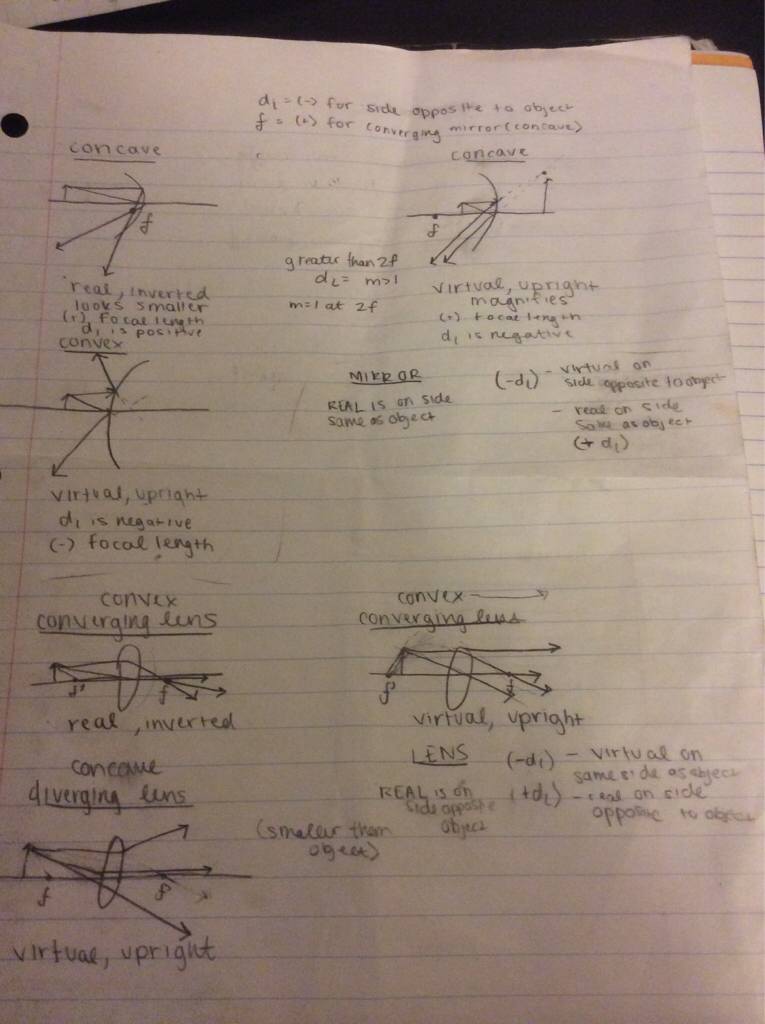 di = (-) for side opposite to object
f = (+) for converging mirror (concave)
concave
f
real, inverted
looks smaller
(+) focal length
di is positive
concave
f
virtual, upright
magnifies
(+) focal length
di is negative
greater than 2f
m>1
m=1 at 2f
convex
virtual, upright
di is negative
(-) focal length
MIRROR
REAL is on side
same as object
(-di) - virtual on
side opposite to object
- real on side
same as object
(+ di)
convex
converging lens
f'
f
real, inverted
convex
converging lens
f'
f
virtual, upright
concave
diverging lens
f
f
virtual, upright
(smaller than
object)
LENS
REAL is on
side opposite
object
(-di) - virtual on
same side as object
(+di) - real on side
opposite to object